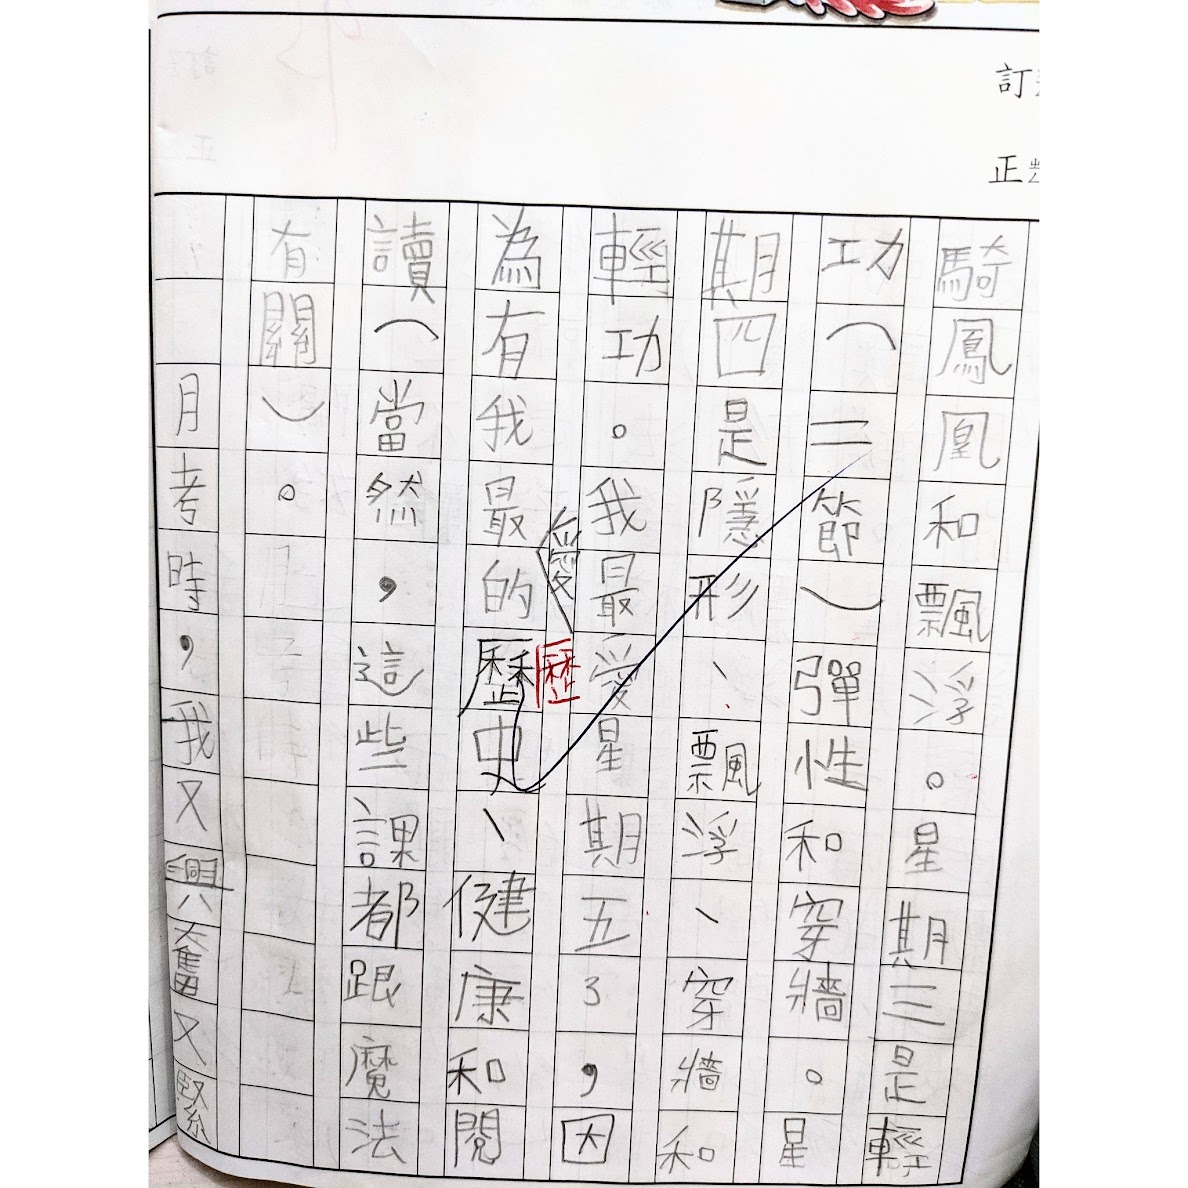 訂
正
騎鳳凰和飄浮。星期三是輕
功（二節）彈性和穿牆。星
期四是隱形、飄浮、穿牆和
輕功。我最受星期五了，因
愛
為有我最的歷史、健康和閱
歷
讀（當然，這些課都跟魔法
有關）。
月考時，我又興奮又緊